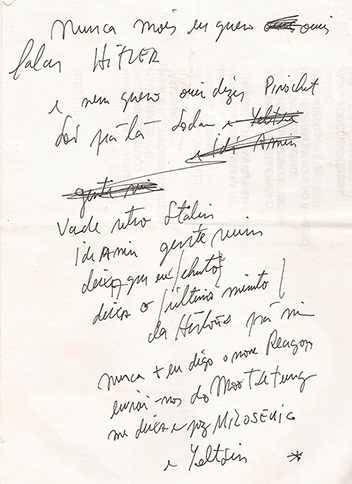 nunca mais eu quero ouvi
falar HITLER
e nem quero ouvi dizer Pinochet
pra lá e Yeltsi
e Idi Amin
gente
Vade retro Stálin
Idi Amin gente ruim
deixa que eu chuto
deixa o último minuto
da História pra mim
nunca + eu digo o nome Reagan
do Mao Tsé tung
me deixa MILOSEVIC
e Yeltsin *